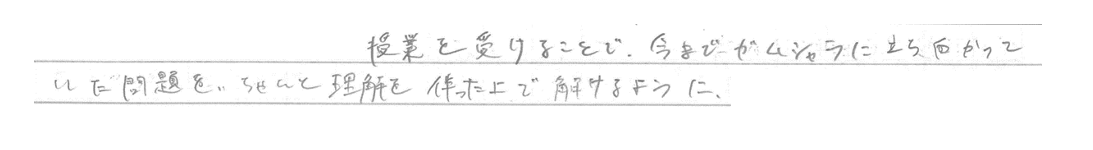 授業を受けることで、今までがムシャラに立ち向かって
いた問題を、ちゃんと理解を伴った上で解けるように、